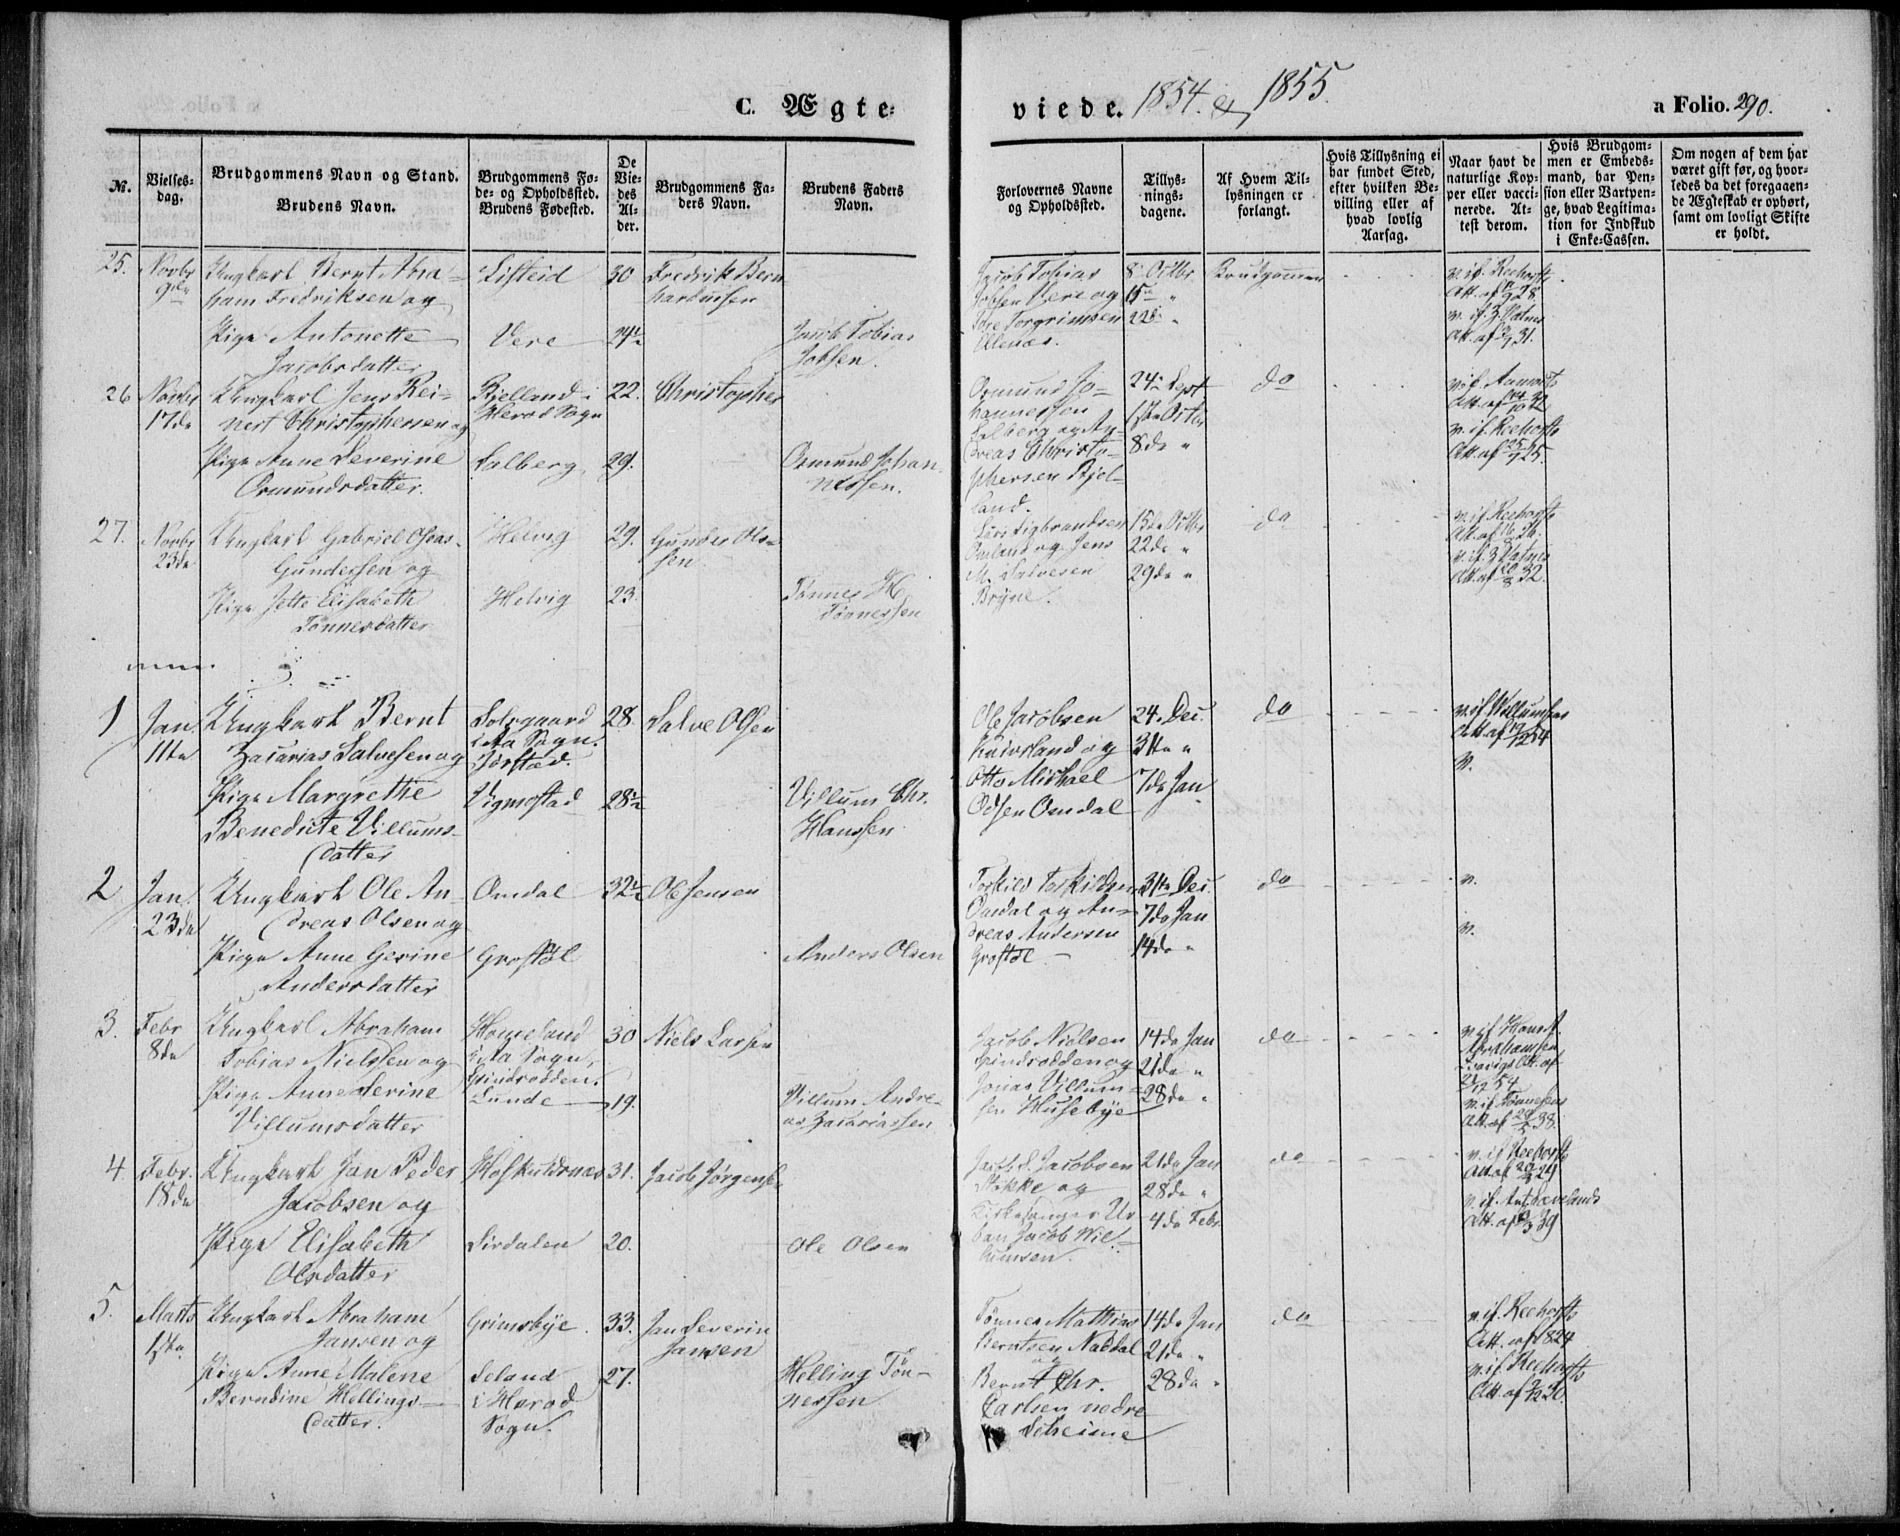 C. Ægte-
viede. 1854. & 1855.
a Folio. 290.
No.
Vielses-
dag.
Brudgommens Navn og Stand.
Brudens Navn.
Brudgommens Fø-
de- og Opholdssted.
Brudens Fødested.
De
Vie-
des
Al-
der.
Brudgommens Fa-
ders Navn.
Brudens Faders
Navn.
Forlovernes Navne
og Opholdssted.
Tillys-
nings-
dagene.
Af Hvem Til-
lysningen er
forlangt.
Hvis Tillysning ei
har fundet Sted,
efter hvilken Be-
villing eller af
hvad lovlig
Aarsag.
Naar havt de
naturlige Kop-
per eller vacci-
nerede. At-
test derom.
Hvis Brudgom-
men er Embeds-
mand, har Pen-
sion eller Vartpen-
ge, hvad Legitima-
tion for Indskud
i Enke-Cassen.
Om nogen af dem har
været gift før, og hvor-
ledes da det foregaaen-
de Ægteskab er ophørt,
samt om lovligt Skifte
er holdt.
25. Novbr
9de
Ungkarl Bernt Abra-
ham Fredriksen og
Pige Antonette
Jacobsdatter
Vere
30
Fredrik Bern
hardussen
Jacob Tobias
Jobsen
Jacob Tobias
Jobsen Vere og
Tore Torgrimsen
Ollenæs.
8. Octbr
15de "
22de "
Brudgommen
v. if. Reehorsts
Att. af
v. if.
Att. af 31.
26 Novbr
17de
Ungkarl Jens Rei-
nert Christophersen og
Pige Anne Severine
Osmundsdatter.
Bjelland i
Herod Sogn
Salberg
22.
29.
Christopher
Osmund Johan-
nessen.
Osmund Jo-
hannessen
Salberg og An-
dreas Christo-
phersen Bjel-
land.
24de Sept
1ste Octbr
8de "
do
v. if. Reehorsts
Att. af 25.
27. Novbr
23de
Ungkarl Gabriel
Gundersen og
Pige Jette Elisabeth
Tønnesdatter
Helvig
Helvig
29.
23.
Gunder Ols-
sen
Tønnes H.
Tønnessen
Lars Sigbrandsen
Omland og Jens
M. Salvesen
Bryne.
15de Octbr
22de "
29de "
do
v. if. Reehorsts
Att. af
v. if.
Att. af 32.
1 Jan.
11te
Ungkarl Bernt
Zacarias Salvesen og
Pige Margrethe
Benedicte Villums-
datter
Solsgaard
i Aa Sogn.
Jorstad.
Vigmostad
28.
28½
Salve Olsen
Villum Chr.
Hanssen
Ole Jacobsen
og
Otto Michael
Odsen Omdal
24. Dec.
31te "
7de Jan
do
v. if. Willumsens
Att. af
v.
2 Jan.
23de
Ungkarl Ole An-
dreas Olsen og
Pige Anne Gesine
Andersdatter
Omdal
Grostøl
32½
Ole Jensen
Anders Olsen
Torkild Torkildsen
Omdal og An-
dreas Andersen
Grostøl
31te Dec.
7de Jan
14de "
do
v.
v.
3. Febr
8de
Ungkarl Abraham
Tobias Nielssen og
Pige Anne Serine
Villumsdatter
Homeland
i Aa Sogn,
Grindrodden.
Lunde
30
19.
Niels Larsen
Villum Andre-
as Zacariassen
Jacob Nielsen
Grindrodden og
Jonas Villum-
sen Husebye
14de Jan
21de "
28de "
do
v. if. Hans A.
Abrahamsen
Att. af
v. if. Tønnesens
Att. af 38.
4. Febr.
18de
Ungkarl Jan Peder
Jacobsen og
Pige Elisabeth
Olsdatter
Hoskuldsnæs
Sirdalen
31.
20.
Jacob Jørgensen
Ole Olsen
Jacob S. Jacobsen
Stikke og
Kirkesanger Ur-
ban Jacob Wil-
lumsen.
21de Jan
28de "
4de Febr
do
v. if. Reehorsts
Att. af 29
Att. af 39
5. Marts
1ste
Ungkarl Abraham
Jansen og
Pige Anne Malene
Berndine Hellings-
datter.
Grimsbye
Seland
i Herod
Sogn.
33.
27.
Jan Severin
Jansen
Helling Tøn-
nessen
Tønnes Mathias
Berntsen Nædal
og
Bernt Chr.
Carlsen nedre
Scheime
14de Jan
21de "
28de "
do
v. if. Reehorsts
Att. af 1824
v. if. Reehorsts
Att. af